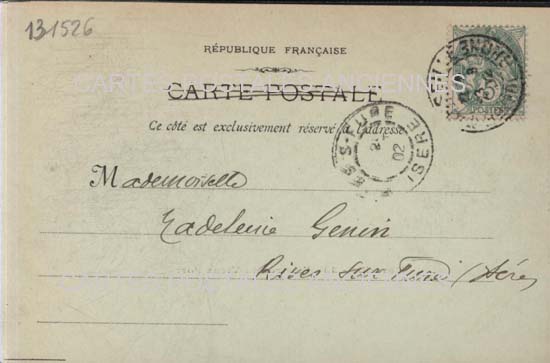 131526
RÉPUBLIQUE FRANÇAISE
CARTES POSTALES ANCIENNES
CARTE POSTALE
Ce côté est exclusivement réservé à l'adresse
ISERE
02
Mademoiselle
Madeleine Genin
Rives sur Fure (Isère)